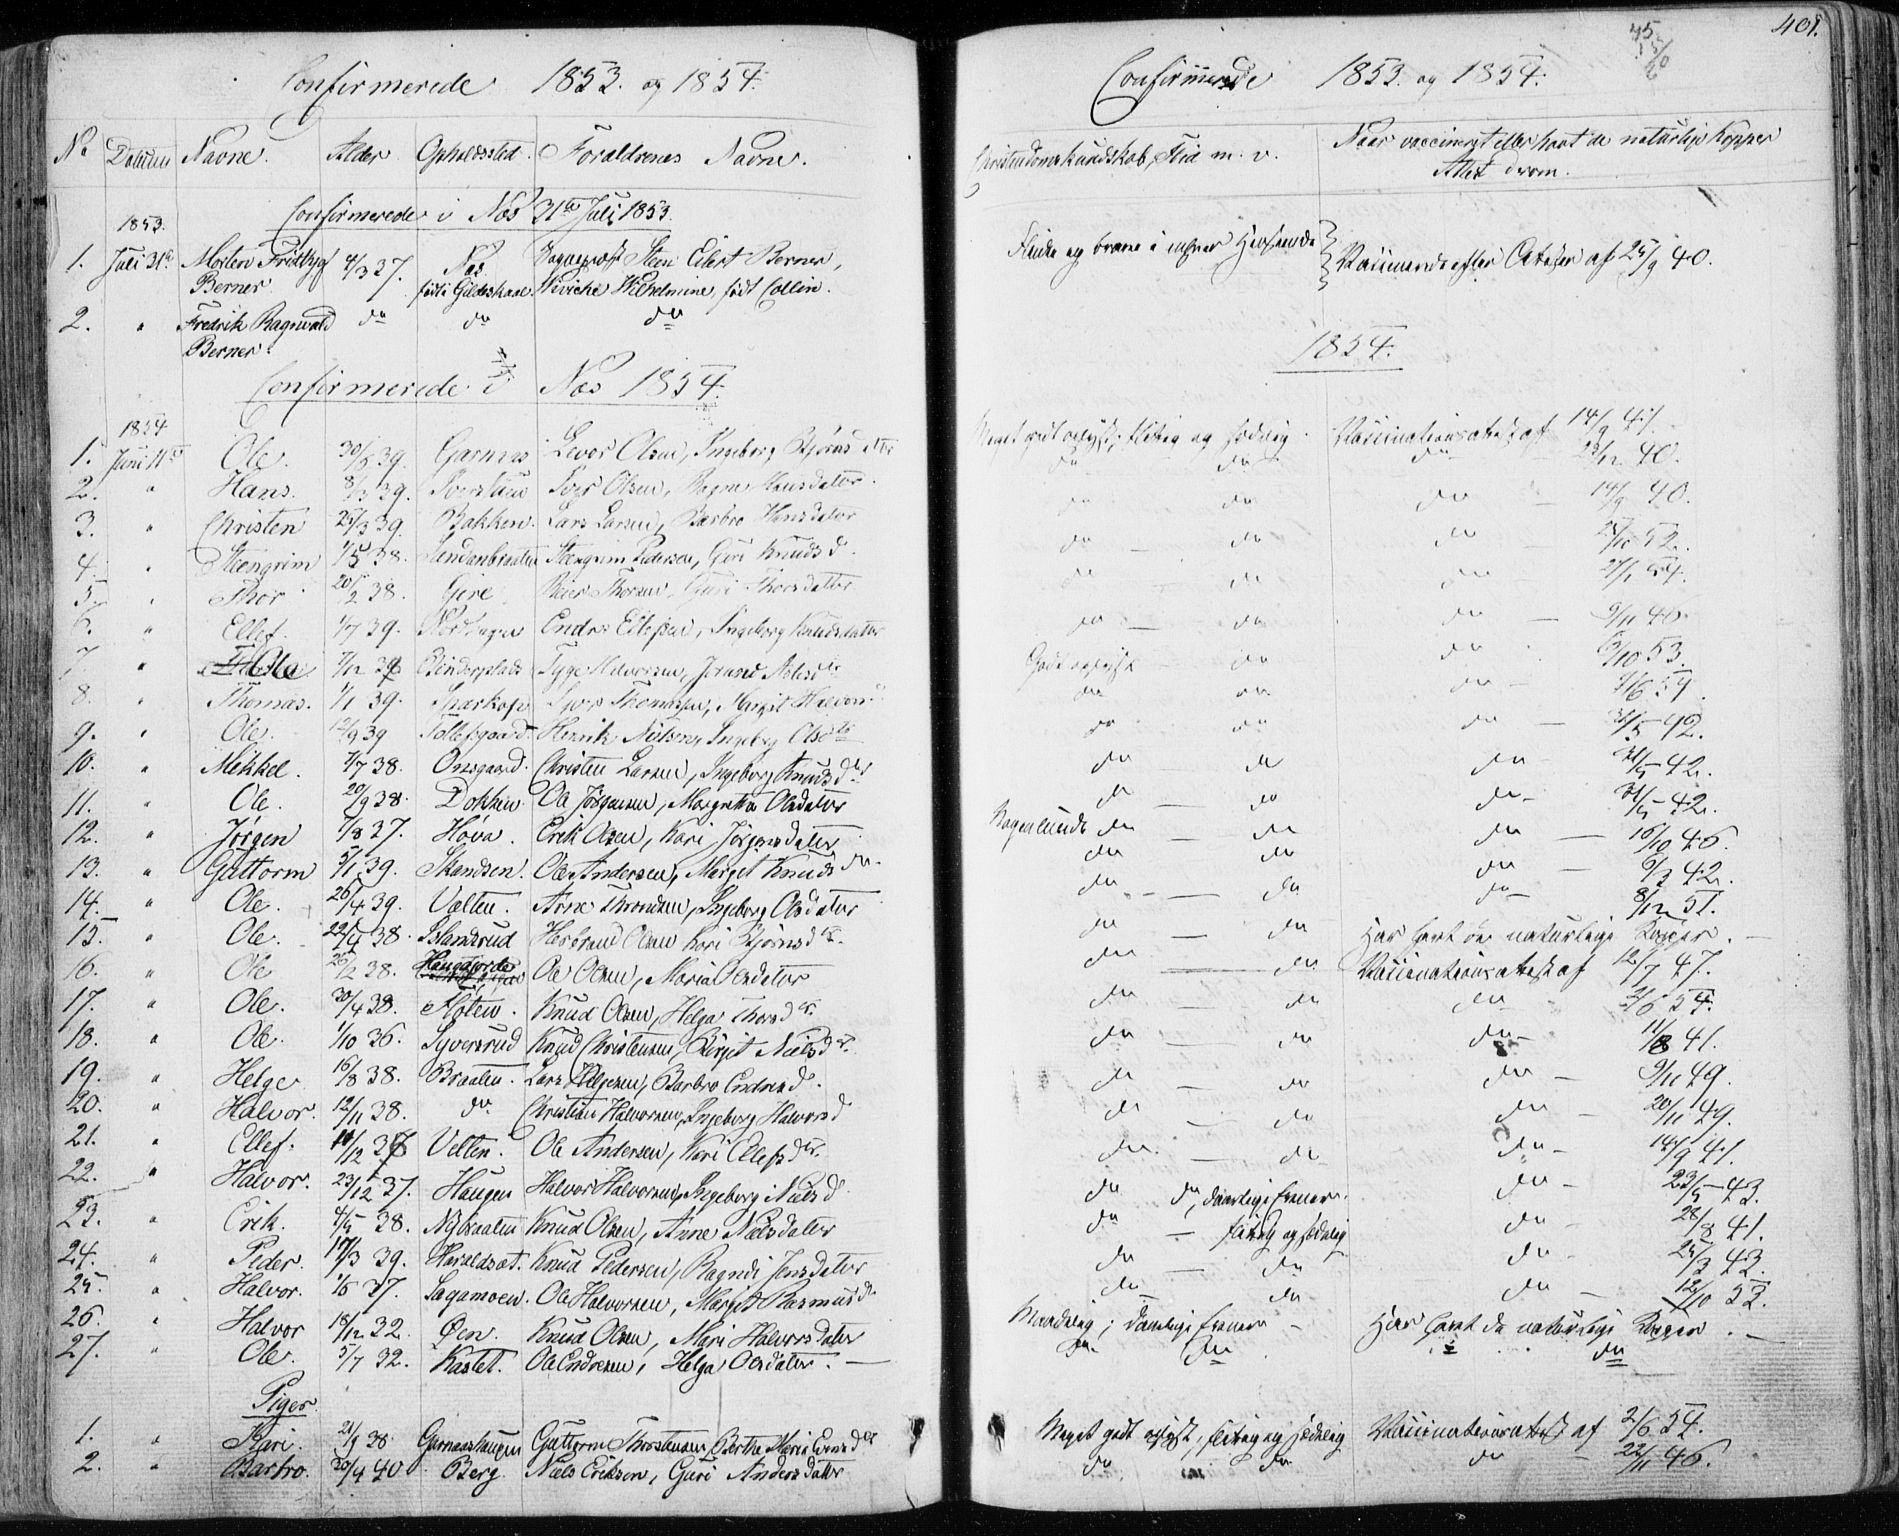 Confirmerede 1853. og 1854.
No Datum Navne. Alder Opholdssted. Forældrenes Navne.
Confirmerede i Næs 31te Juli 1853.
1853.
1. Juli 31te Morten Fridthjof 4/3 37. Næs
Berner Wilhelmine, født Collin.
2. " Fredrik Ragnvald do do do
Berner.
Confirmerede i Næs 1854.
1854
1. Juni 11te Ole. 30/5 39. Garnaas Ingeborg Bjørnsdatter
2. " Hans. 8/3 39. Olsen,
3. " Christen 25/3 39. Bakken. Lars Larsen, Barbro Hansdater
4. " Steengrim 1/5 38. Steengrim Pedersen, Guri Knudsd.
5. " Thor 20/2 38. Thorsen, Guri Thorsdatter
6. " Ellef. 1/7 39. Endre Ellefsen, Ingeborg Knudsdatter
7. " Ole 7/12 39
8. " Thomas. 1/1 39. Thomassen, Margit
9. " Ole. 12/9 39 Tollefsgaard. Henrik Nielsen, Ingeborg Olsdtr
10. " Mikkel. 7/7 38. Onsgaard. Christen Larsen, Ingeborg Knudsdtr
11. " Ole. 20/9 38. Dokken Ole Jørgensen, Margretha Olsdatter
12. " Jørgen 7/8 37. Høva. Erik Olsen, Kari Jørgensdatter
13. " Guttorm 5/1 39. Skandsen. Ole Andersen, Marget Knudsdtr.
14. " Ole. 26/4 39. Velten. Arne Throndsen, Ingeborg Olsdatter
15. " Ole. 22/4 38. Islandsrud Herbrand Olsen Kari Bjørnsdtr.
16. " Ole 25/2 38. Ole Olsen, Maria Olsdatter
17. " Ole. 30/4 38. Knud Olsen, Helga Thorsdtr.
18. " Ole. 1/10 36. Syversrud Knud Christensen, Birgit Nielsdtr.
19. " Helge. 16/8 38. Braaten. Lars Helgesen, Barbro Endresd.
20. " Halvor. 12/11 38. do Christian Halvorsen, Ingeborg Halvorsd
21. " Ellef. 12 38 Velten. Ole Andersen, Kari Ellefsdtr.
22. " Halvor. 23/12 37. Haugen Halvor Halvorsen, Ingeborg Nielsd.
23. " Erik. 4/5 38. Nybraaten Knud Olsen, Anne Nielsdatter
24. " Peder. 17/3 39. Haraldset. Knud Pedersen, Ragndi Jensdatter
25. " Halvor. 1/6 37. Sagamoen. Ole Halvorsen, Margit Rasmusd.
26. " Halvor 18/12 32. Øen. Knud Olsen, Mari Halvorsdatter
27. " Ole. 5/7 32. Kastet. Ole Endresen, Helga Olsdatter.
Piger.
1. " Kari. 21/9 38. Garnaashaugen Guttorm Thorstensen, Berthe Maria
2. " Barbro. 30/4 40. Berg. Niels Eriksen, Guri Andersdatter
401.
45
Confirmerede 1853. og 1854.
Christendomskundskab, Flid m. v. Naar vaccineret eller havt de naturlige Kopper
Attest derom.
Flinke og brave i enhver Henseende Attester af 25/9 40.
1854.
Meget godt oplyst; flittig og sædelig. Vaccinationsattest af 14/9 41.
do do do 23/12 40.
do do do 14/9 40.
do do do 25/10 52.
do do do 27/1 54.
do do do 9/11 40.
Godt oplyst do do 6/10 53.
do do do 2/6 54.
do do do 31/5 42.
do do do 31/5 42.
do do do 31/5 42.
Nogenlunde do do do 16/10 46.
do do do 9/3 42.
do do do 8/12 51.
do do Har havt de naturlige Kopper.
do do Vaccinationsattest af 12/7 47.
do do do 2/6 54.
do do do 11/8 41.
do do do 9/11 49.
do do do 20/11 49.
do do do 14/9 41.
do do, daarlige Evner. do 23/5 43.
do flittig og sædelig do 28/8 41.
do do do 25/3 43.
do do do 12/10 53.
Maadelig; daarlige Evner Har havt de naturlige Kopper.
do. do do
Meget godt oplyst, flittig og sædelig Vaccinationsattest af 2/6 54.
do do do 22/11 46.